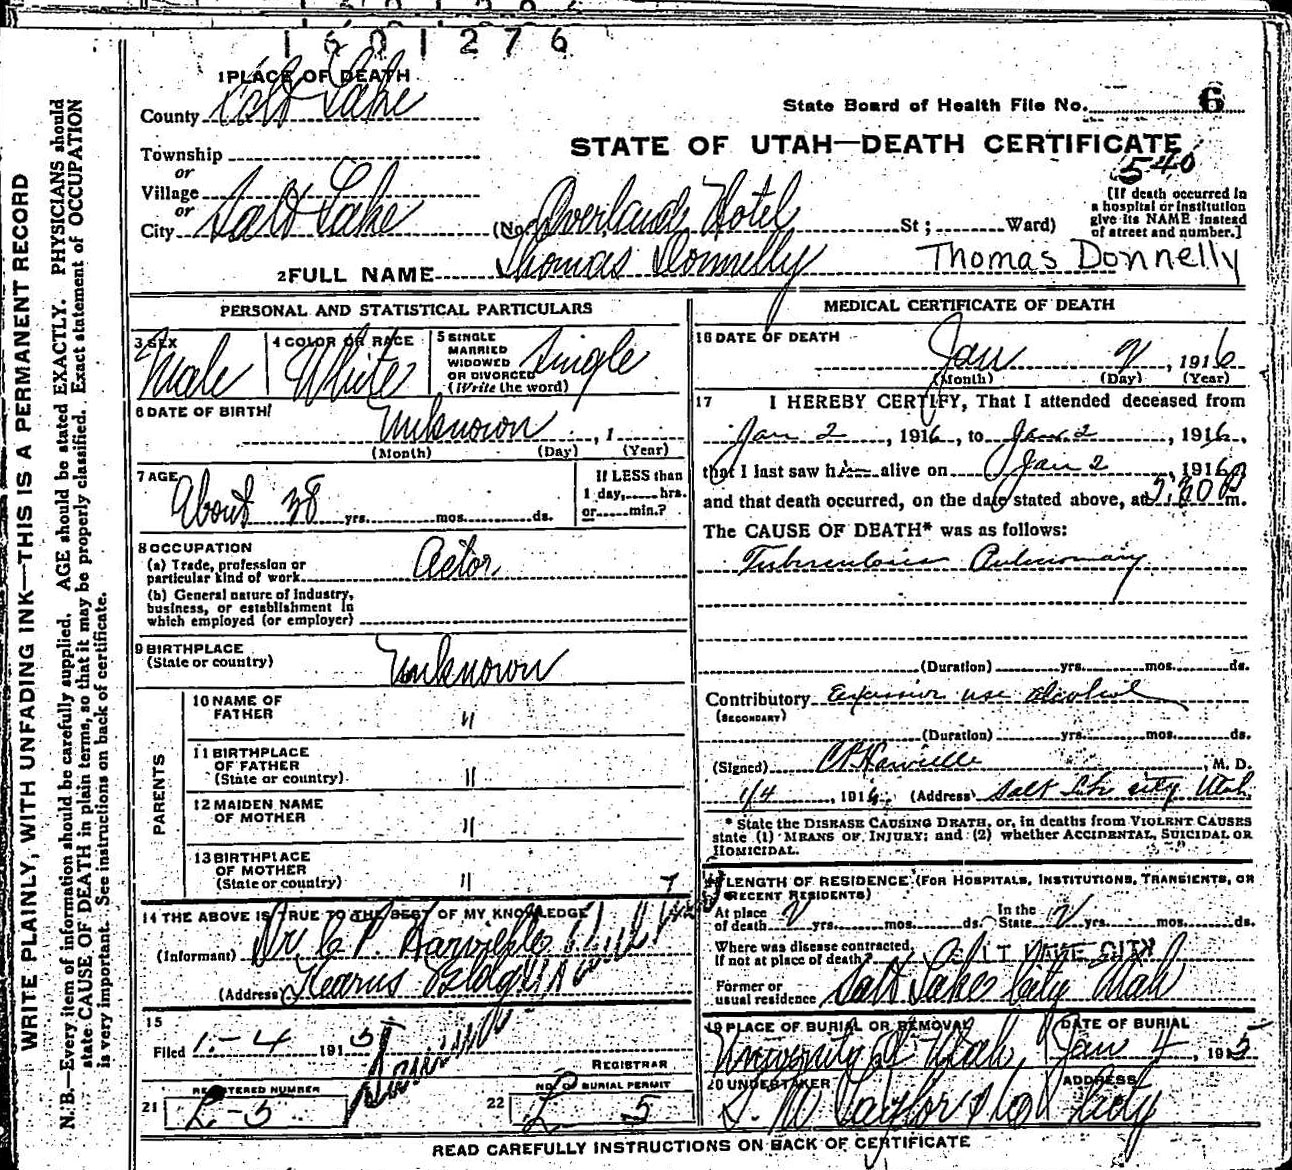 1601276
1 PLACE OF DEATH
County Salt Lake
State Board of Health File No. 6
STATE OF UTAH—DEATH CERTIFICATE
540
Township
or
Village
or
City Salt Lake (No. Overland Hotel St; Ward)
[If death occurred in
a hospital or institution
give its NAME instead
of street and number.]
2 FULL NAME Thomas Donnelly Thomas Donnelly
PERSONAL AND STATISTICAL PARTICULARS
3 SEX Male
4 COLOR OR RACE White
5 SINGLE
MARRIED
WIDOWED
OR DIVORCED
(Write the word) Single
6 DATE OF BIRTH
Unknown , 1
(Month) (Day) (Year)
7 AGE
About 38 yrs. mos. ds.
If LESS than
1 day, hrs.
or min.?
8 OCCUPATION
(a) Trade, profession or
particular kind of work Actor
(b) General nature of industry,
business, or establishment in
which employed (or employer)
9 BIRTHPLACE
(State or country) Unknown
PARENTS
10 NAME OF
FATHER "
11 BIRTHPLACE
OF FATHER
(State or country) "
12 MAIDEN NAME
OF MOTHER "
13 BIRTHPLACE
OF MOTHER
(State or country) "
14 THE ABOVE IS TRUE TO THE BEST OF MY KNOWLEDGE
(Informant) Dr C P
(Address) Kearns Bldg
15
Filed 1-4 1915
REGISTRAR
REGISTERED NUMBER
21 L-5
NO. OF BURIAL PERMIT
22 L 5
MEDICAL CERTIFICATE OF DEATH
16 DATE OF DEATH
Jan 2, 1916
(Month) (Day) (Year)
17 I HEREBY CERTIFY, That I attended deceased from
Jan 2, 1916, to Jan 2, 1916,
that I last saw him alive on Jan 2, 1916
and that death occurred, on the date stated above, at m.
The CAUSE OF DEATH* was as follows:
Tuberculosis Pulmonary
(Duration) yrs. mos. ds.
Contributory Excessive use alcohol
(SECONDARY)
(Duration) yrs. mos. ds.
(Signed) , M. D.
1/4, 1916 (Address) Salt Lake City Utah
* State the DISEASE CAUSING DEATH, or, in deaths from VIOLENT CAUSES
state (1) MEANS OF INJURY; and (2) whether ACCIDENTAL, SUICIDAL OR
HOMICIDAL.
LENGTH OF RESIDENCE (FOR HOSPITALS, INSTITUTIONS, TRANSIENTS, OR
RECENT RESIDENTS)
At place
of death yrs. mos. ds. In the
State yrs. mos. ds.
Where was disease contracted,
If not at place of death? SALT LAKE CITY
Former or
usual residence Salt Lake City Utah
19 PLACE OF BURIAL OR REMOVAL
University of Utah
DATE OF BURIAL
Jan 4, 1915
20 UNDERTAKER
S. M. Taylor & Co
ADDRESS
City
READ CAREFULLY INSTRUCTIONS ON BACK OF CERTIFICATE
WRITE PLAINLY, WITH UNFADING INK—THIS IS A PERMANENT RECORD
N. B.—Every item of information should be carefully supplied. AGE should be stated EXACTLY. PHYSICIANS should
state CAUSE OF DEATH in plain terms, so that it may be properly classified. Exact statement of OCCUPATION
is very important. See instructions on back of certificate.